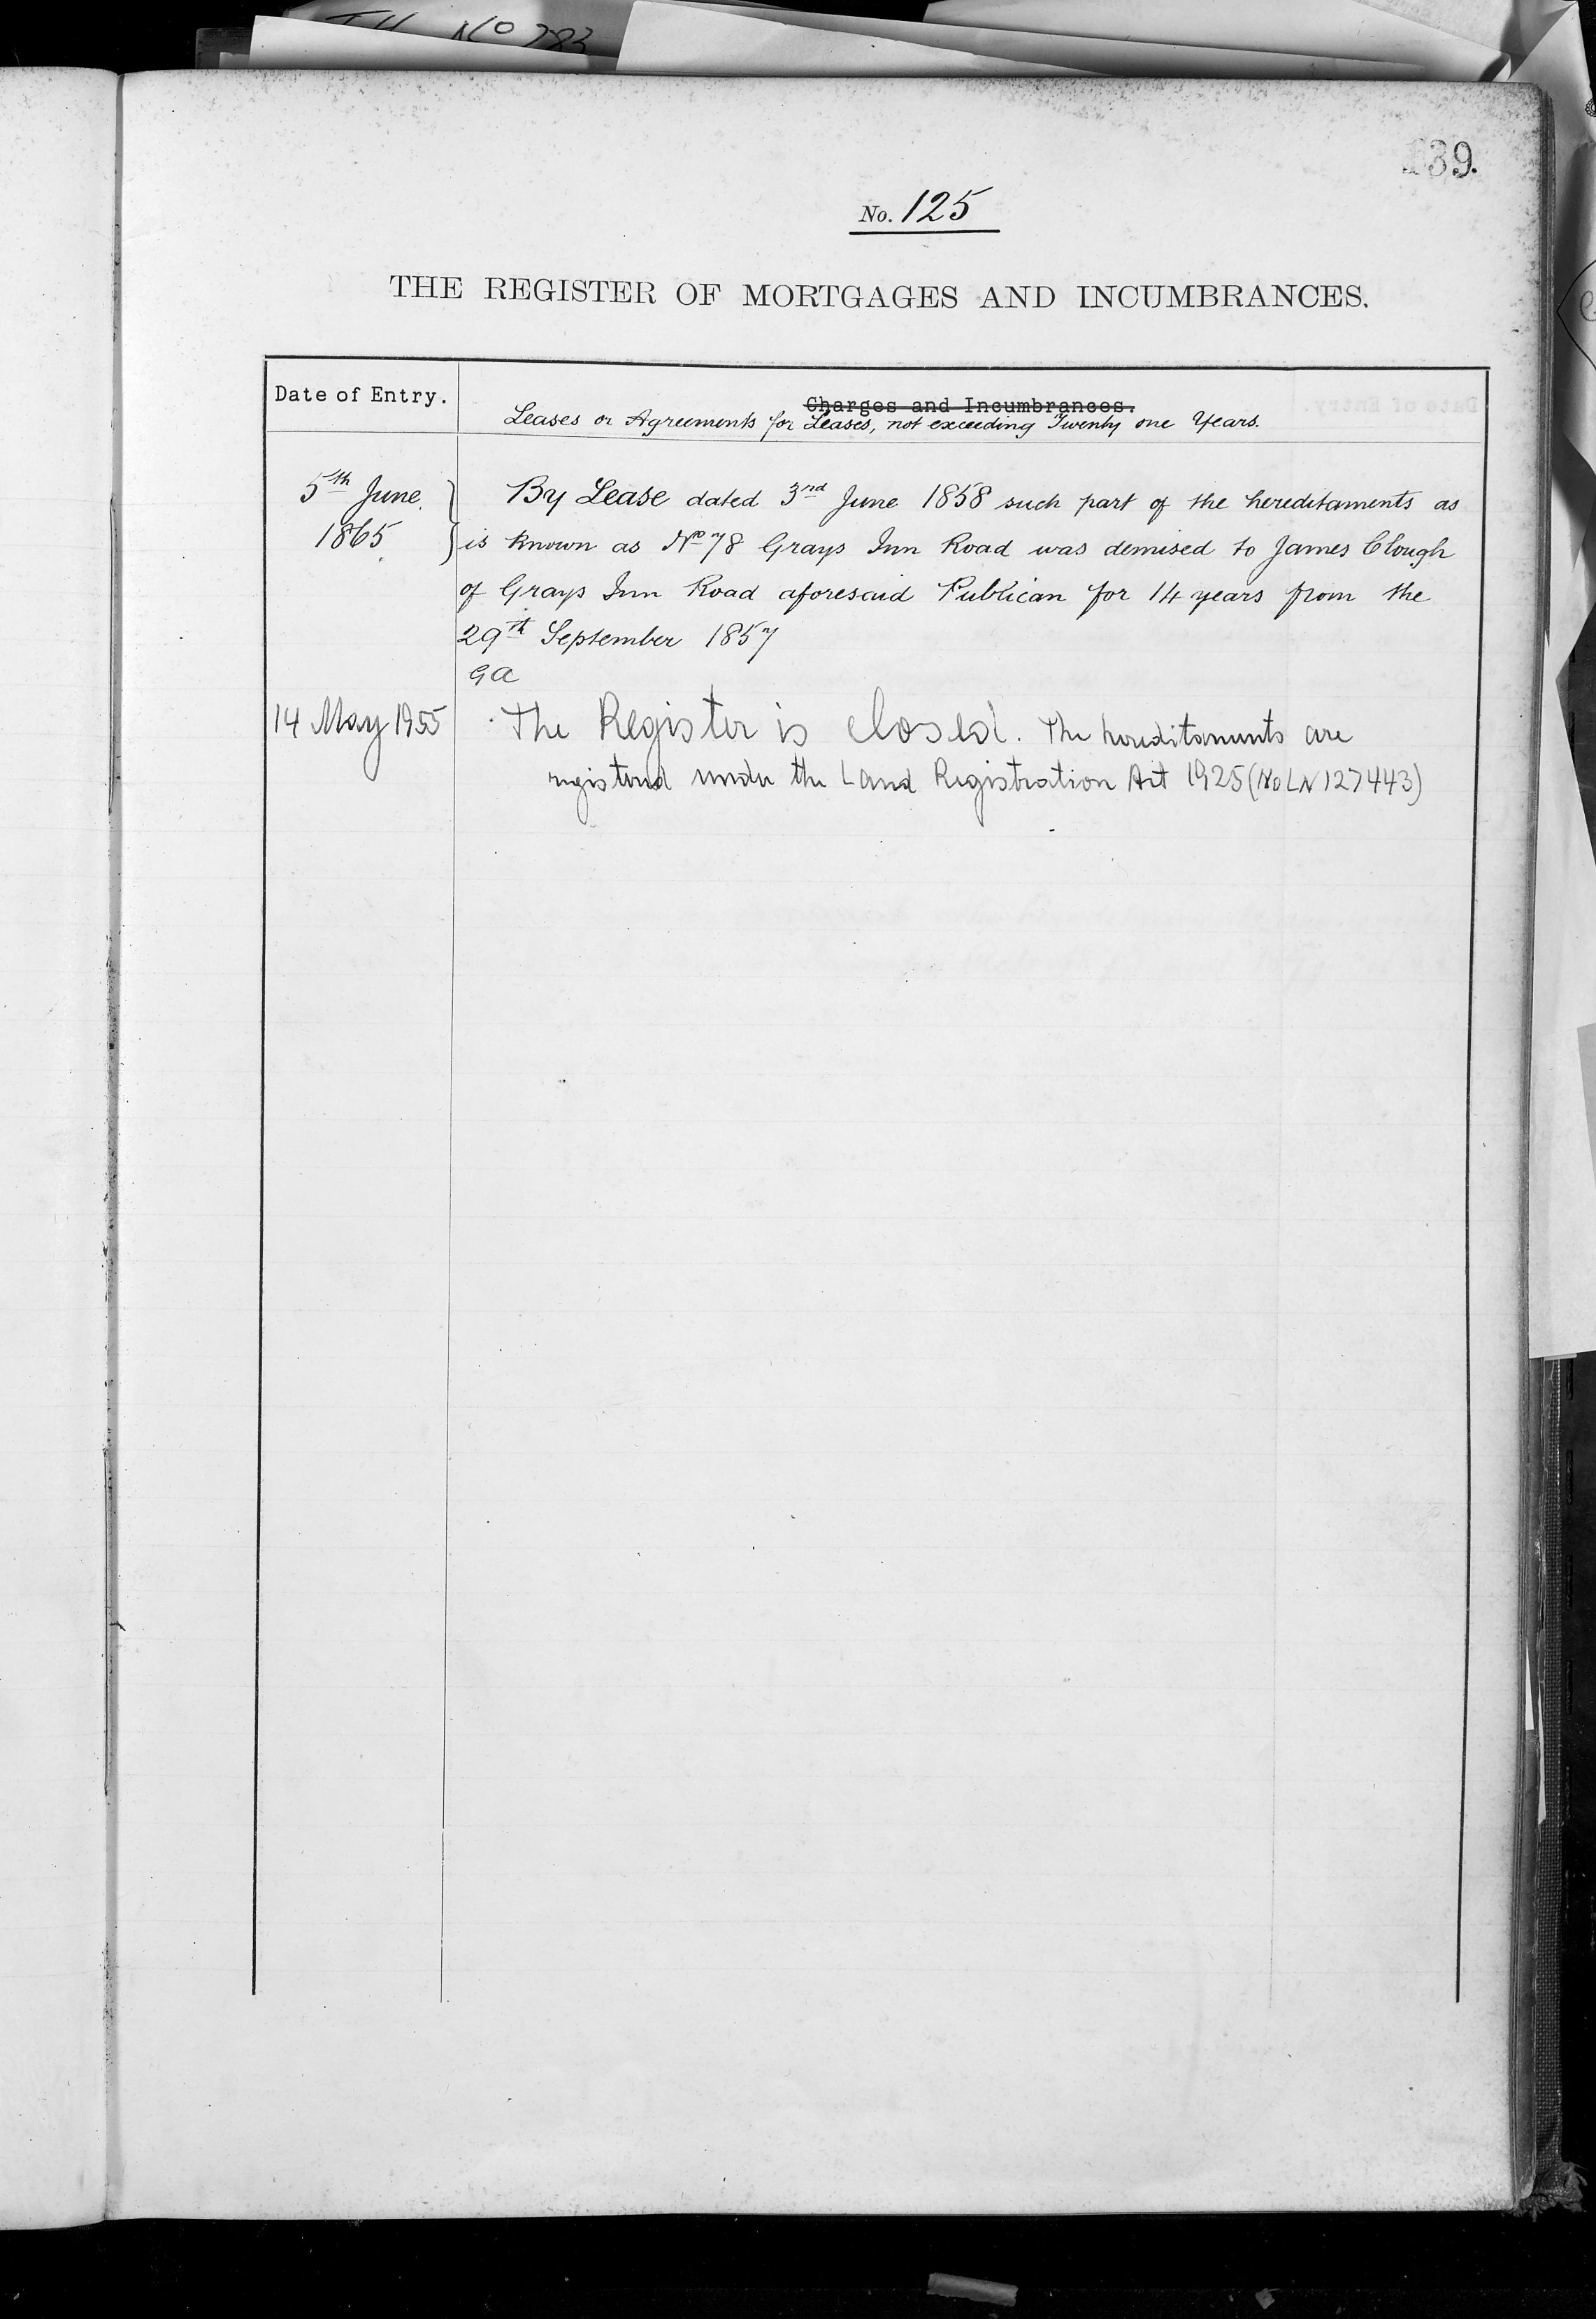 No 283
139.
No. 125
THE REGISTER OF MORTGAGES AND INCUMBRANCES.
Date of Entry.
Charges and Incumbrances.
Leases or Agreements for Leases, not exceeding Twenty one Years.
5th June 1865
By Lease dated 3rd June 1858 such part of the hereditaments as
is known as No 78 Grays Inn Road was demised to James Clough
of Grays Inn Road aforesaid Publican for 14 years from the
29th September 1857
GA
14 May 1955
The Register is closed. The hereditaments are
registered under the Land Registration Act 1925 (No LN 127443)